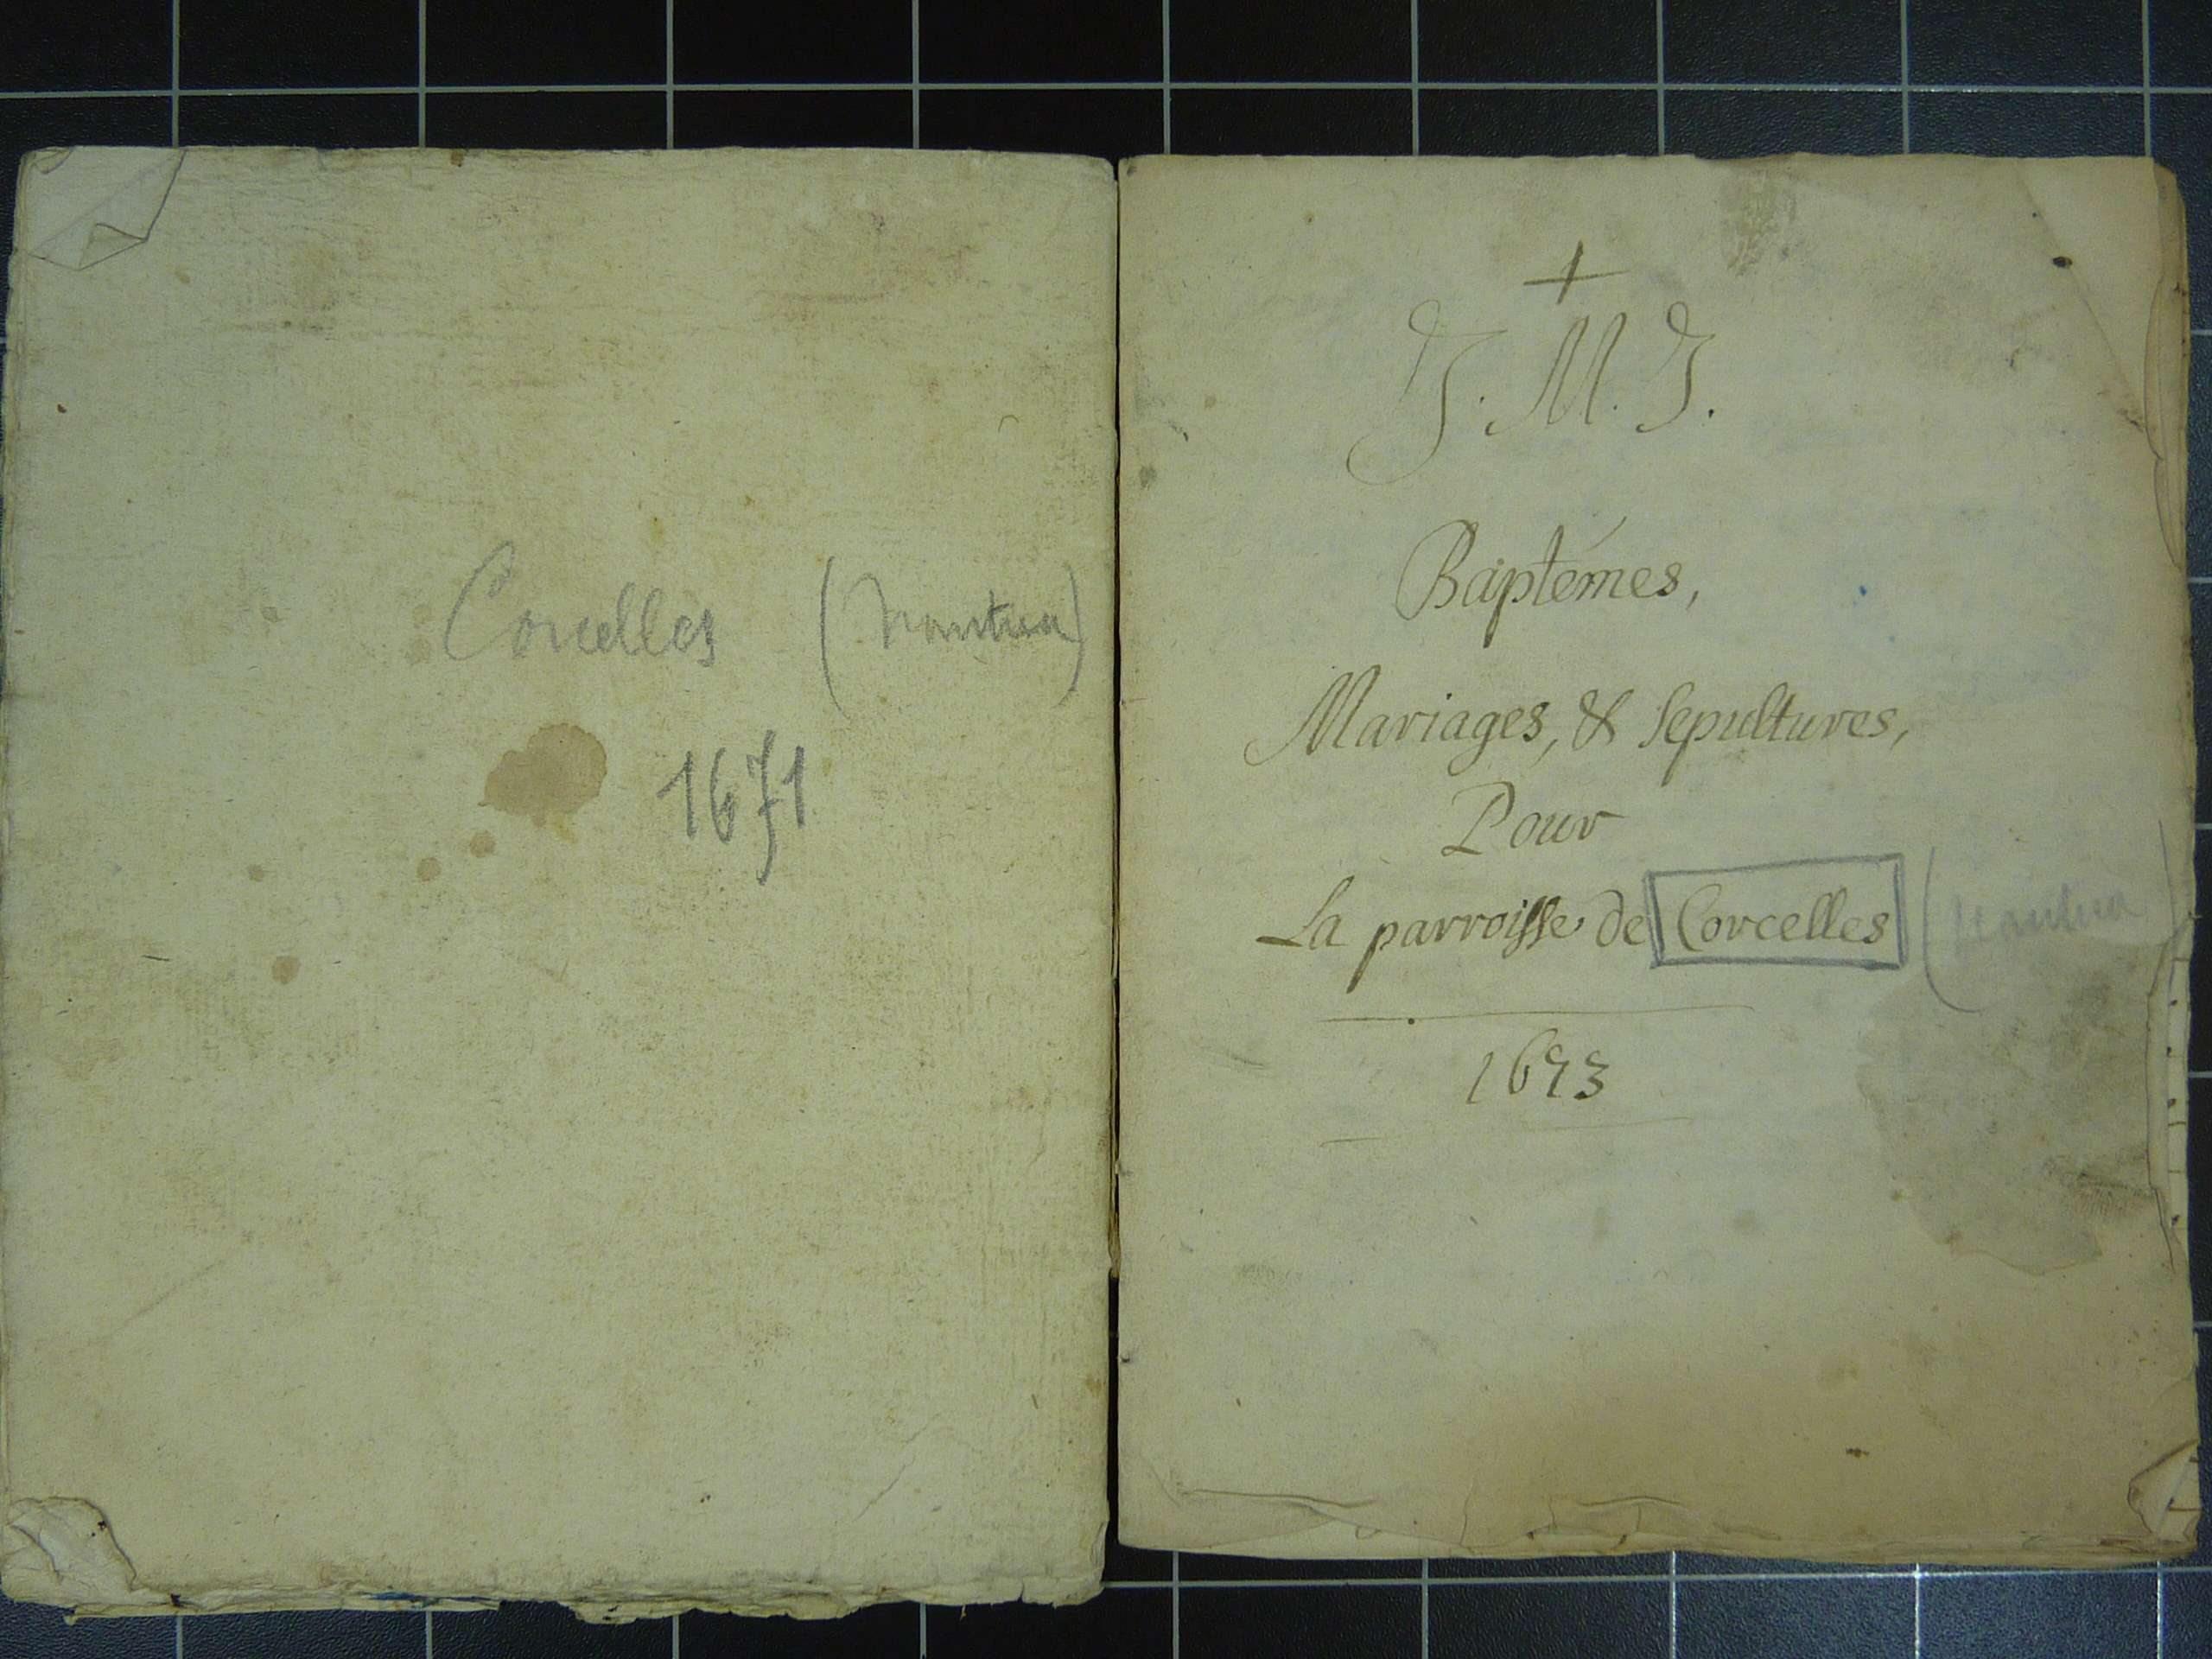 Corcelles (Nantua)
1671
+
J. M. J.
Baptémes,
Mariages, & sepultures,
Pour
La parroisse de Corcelles (Nantua)
1673